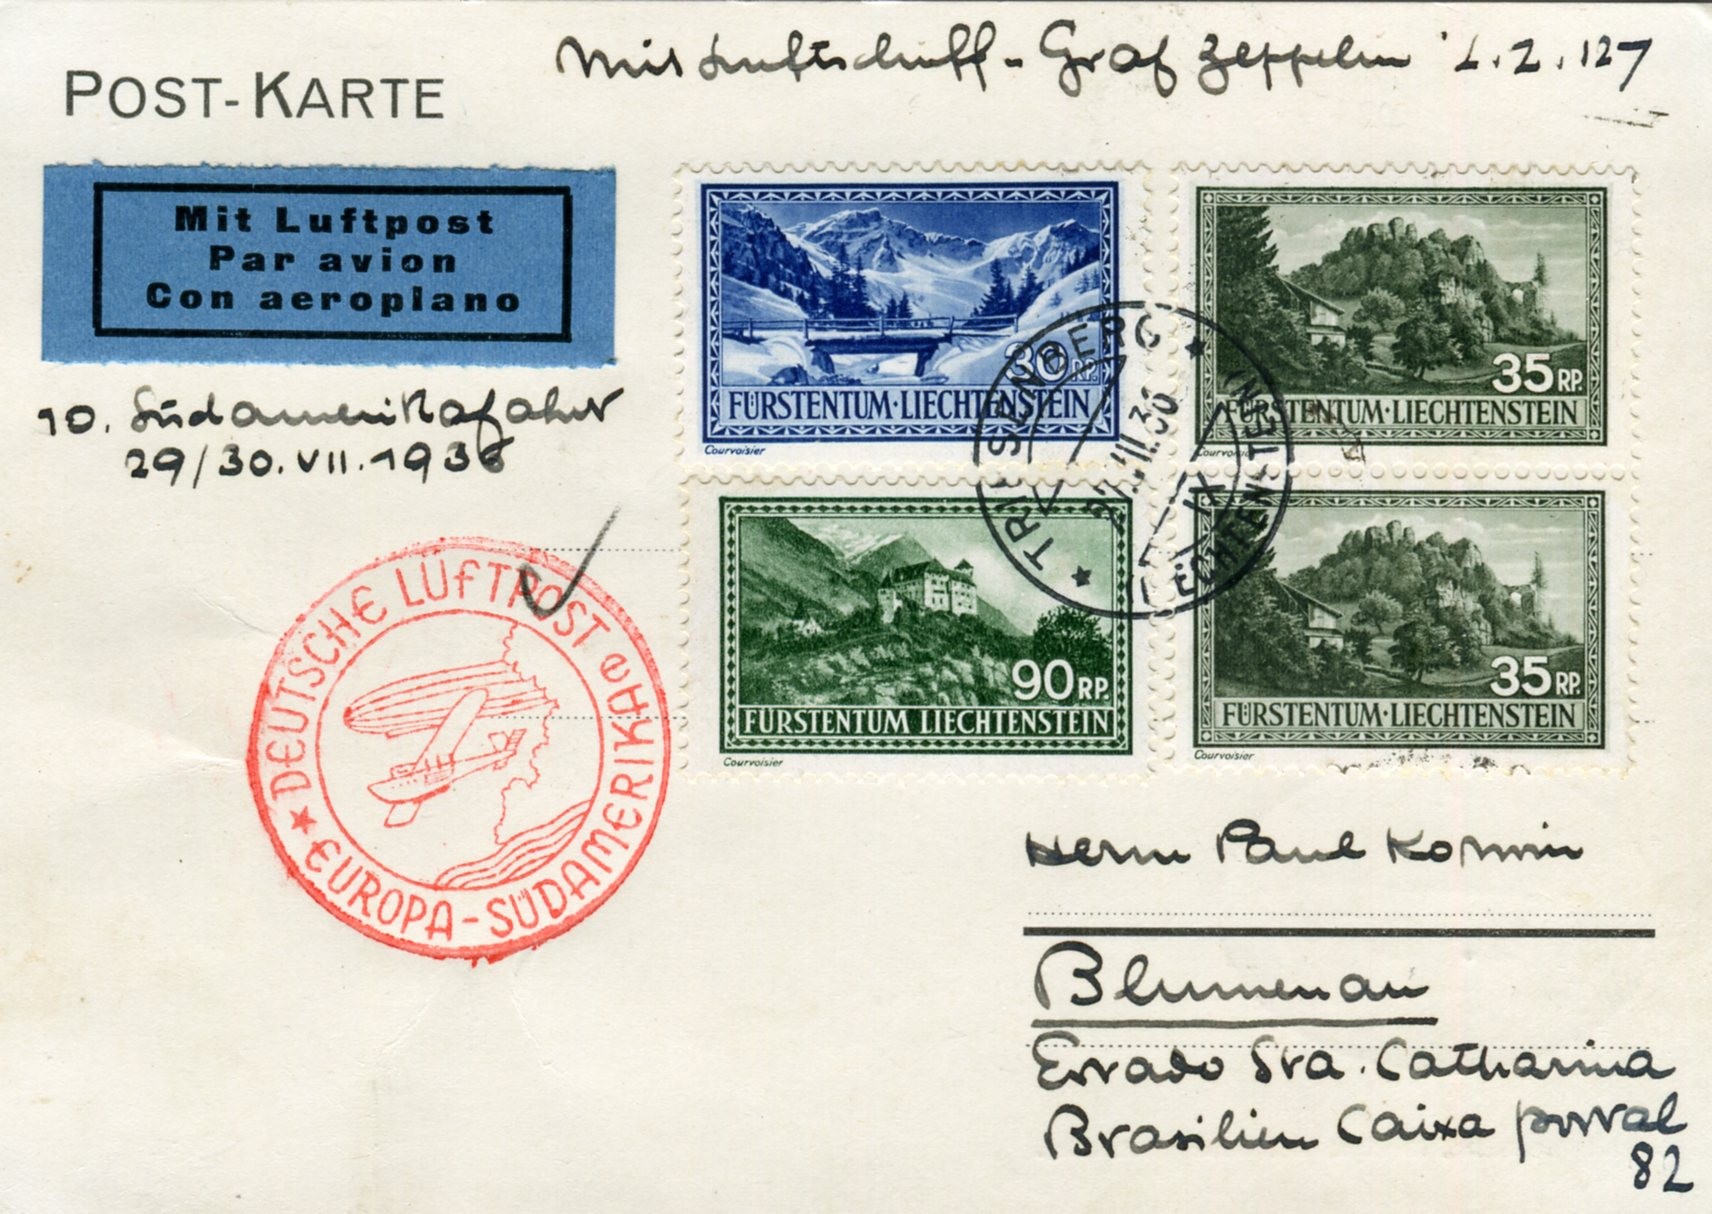 Mit Luftschiff - Graf Zeppelin L.Z. 127
POST-KARTE
Mit Luftpost
Par avion
Con aeroplano
10. Südamerikafahrt
29/30.VII.1936
30 RP.
FÜRSTENTUM·LIECHTENSTEIN
Courvoisier
35 RP.
FÜRSTENTUM·LIECHTENSTEIN
Courvoisier
90 RP.
FÜRSTENTUM LIECHTENSTEIN
Courvoisier
35 RP.
FÜRSTENTUM·LIECHTENSTEIN
Courvoisier
★ TRIESENBERG ★
(LIECHTENSTEIN)
DEUTSCHE LUFTPOST
★ EUROPA-SÜDAMERIKA
Herrn Paul Kornin
Blumenau
Estado Sta. Catharina
Brasilien Caixa postal
82